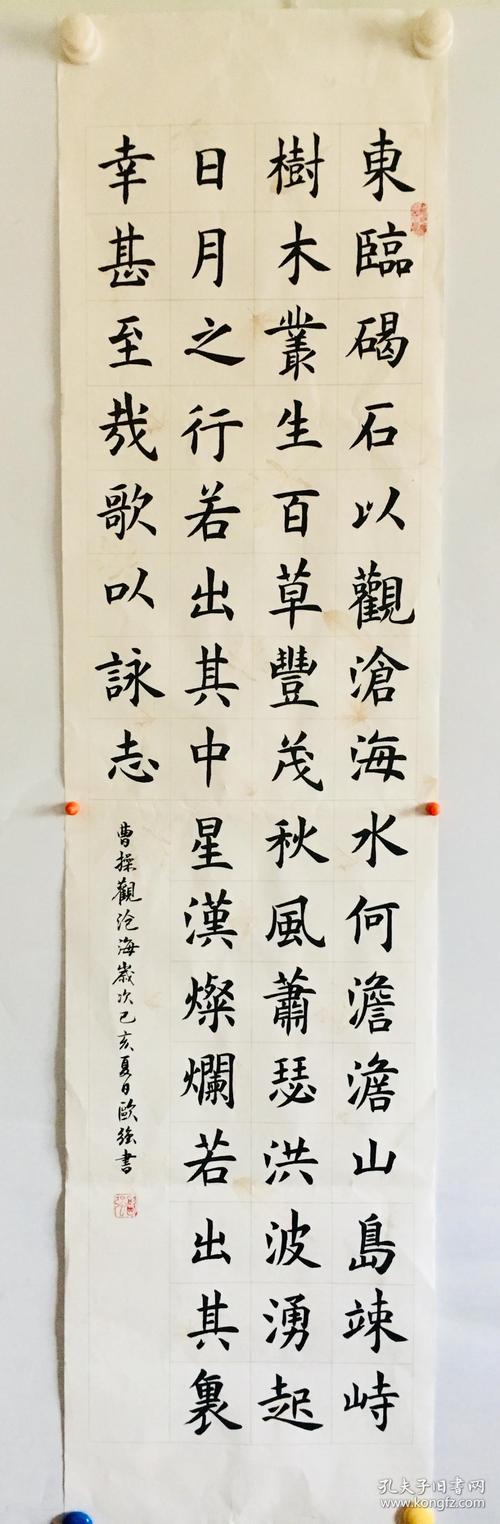 東臨碣石以觀滄海水何澹澹山島竦峙
樹木叢生百草豐茂秋風蕭瑟洪波湧起
日月之行若出其中星漢燦爛若出其裏
幸甚至哉歌以詠志
曹操觀滄海歲次己亥夏日歐強書
孔夫子旧书网
www.kongfz.com